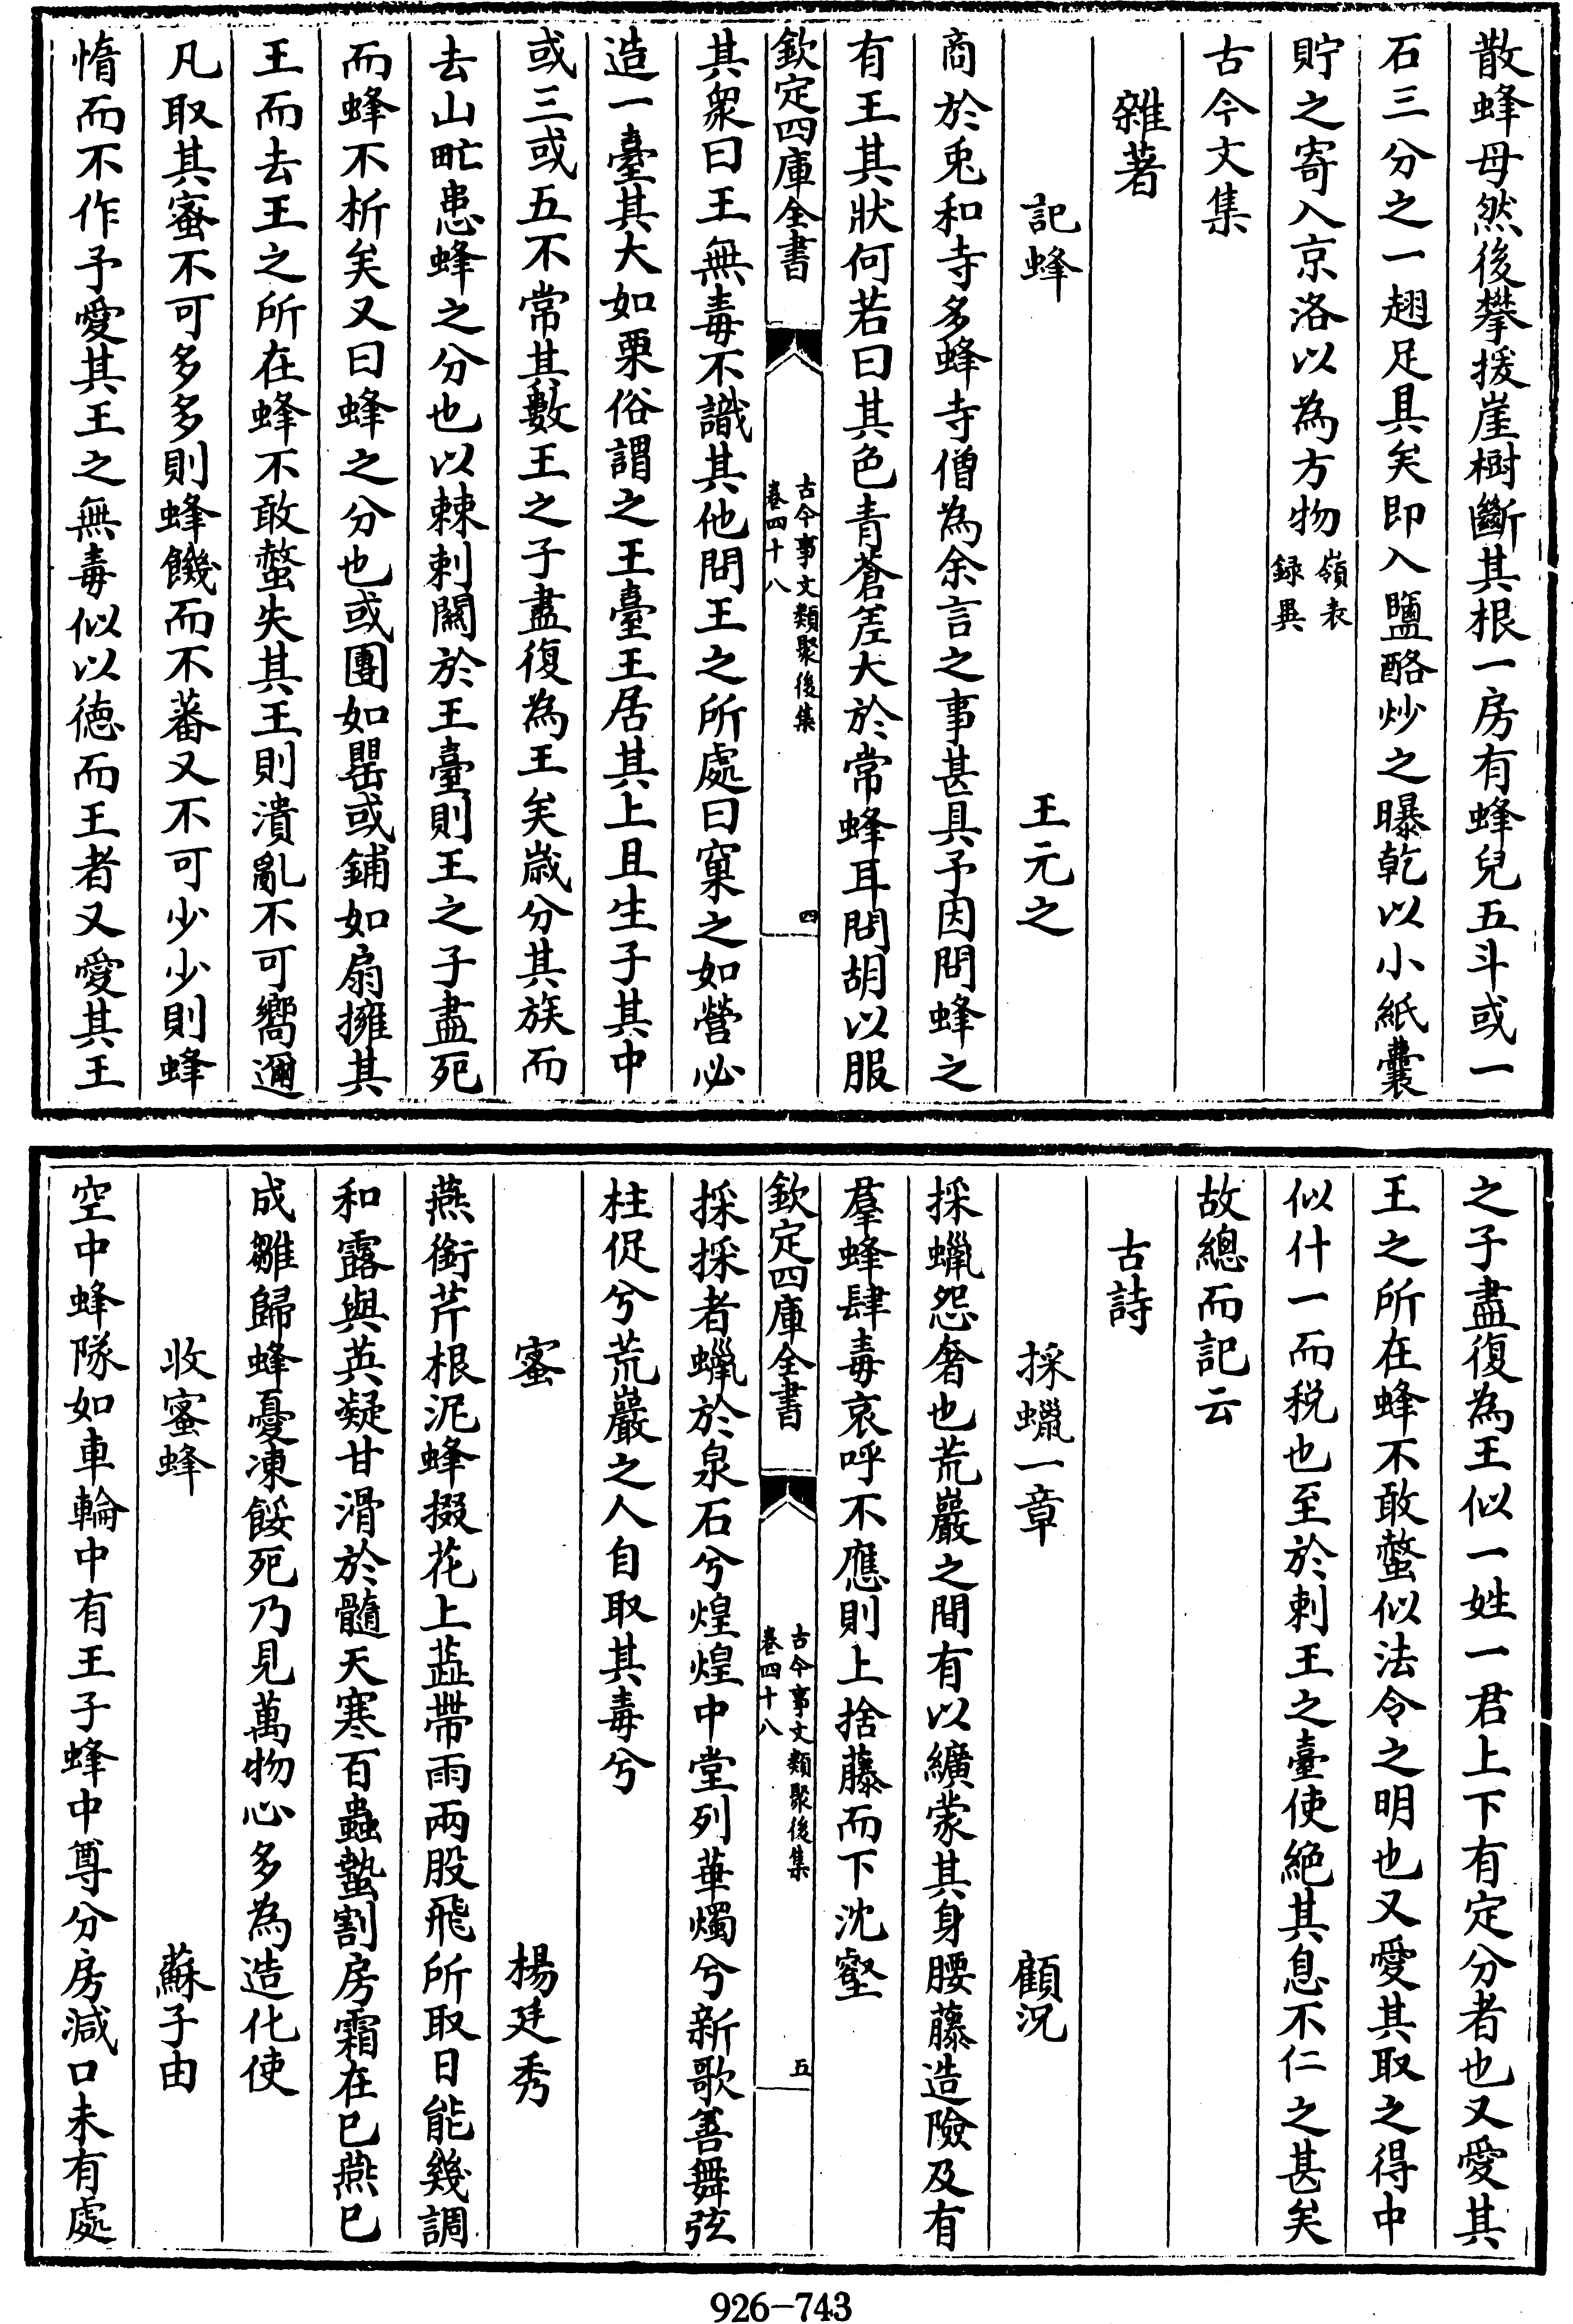 散蜂母然後攀援崖樹斷其根一房有蜂兒五斗或一
石三分之一翅足具矣即入鹽酪炒之曝乾以小紙囊
貯之寄入京洛以為方物嶺表
録異
古今文集
雜著
記蜂 王元之
商於兎和寺多蜂寺僧為余言之事甚具予因問蜂之
有王其狀何若曰其色青蒼差大於常蜂耳問胡以服
欽定四庫全書
古今事文類聚後集
卷四十八
四
其衆曰王無毒不識其他問王之所處曰窠之如營必
造一臺其大如栗俗謂之王臺王居其上且生子其中
或三或五不常其數王之子盡復為王矣歲分其族而
去山甿患蜂之分也以棘刺闗於王臺則王之子盡死
而蜂不析矣又曰蜂之分也或團如罌或鋪如扇擁其
王而去王之所在蜂不敢螫失其王則潰亂不可嚮邇
凡取其蜜不可多多則蜂饑而不蕃又不可少少則蜂
惰而不作予愛其王之無毒似以徳而王者又愛其王
之子盡復為王似一姓一君上下有定分者也又愛其
王之所在蜂不敢螫似法令之明也又愛其取之得中
似什一而税也至於刺王之臺使絶其息不仁之甚矣
故總而記云
古詩
採蠟一章 顧況
採蠟怨奢也荒巖之間有以纊蒙其身腰藤造險及有
羣蜂肆毒哀呼不應則上捨藤而下沈壑
欽定四庫全書
古今事文類聚後集
卷四十八
五
採採者蠟於泉石兮煌煌中堂列華燭兮新歌善舞弦
柱促兮荒巖之人自取其毒兮
蜜 楊廷秀
燕銜芹根泥蜂掇花上蕋帶雨兩股飛所取日能幾調
和露與英凝甘滑於髓天寒百蟲蟄割房霜在已燕已
成雛歸蜂憂凍餒死乃見萬物心多為造化使
收蜜蜂 蘇子由
空中蜂隊如車輪中有王子蜂中尊分房減口未有處
926-743